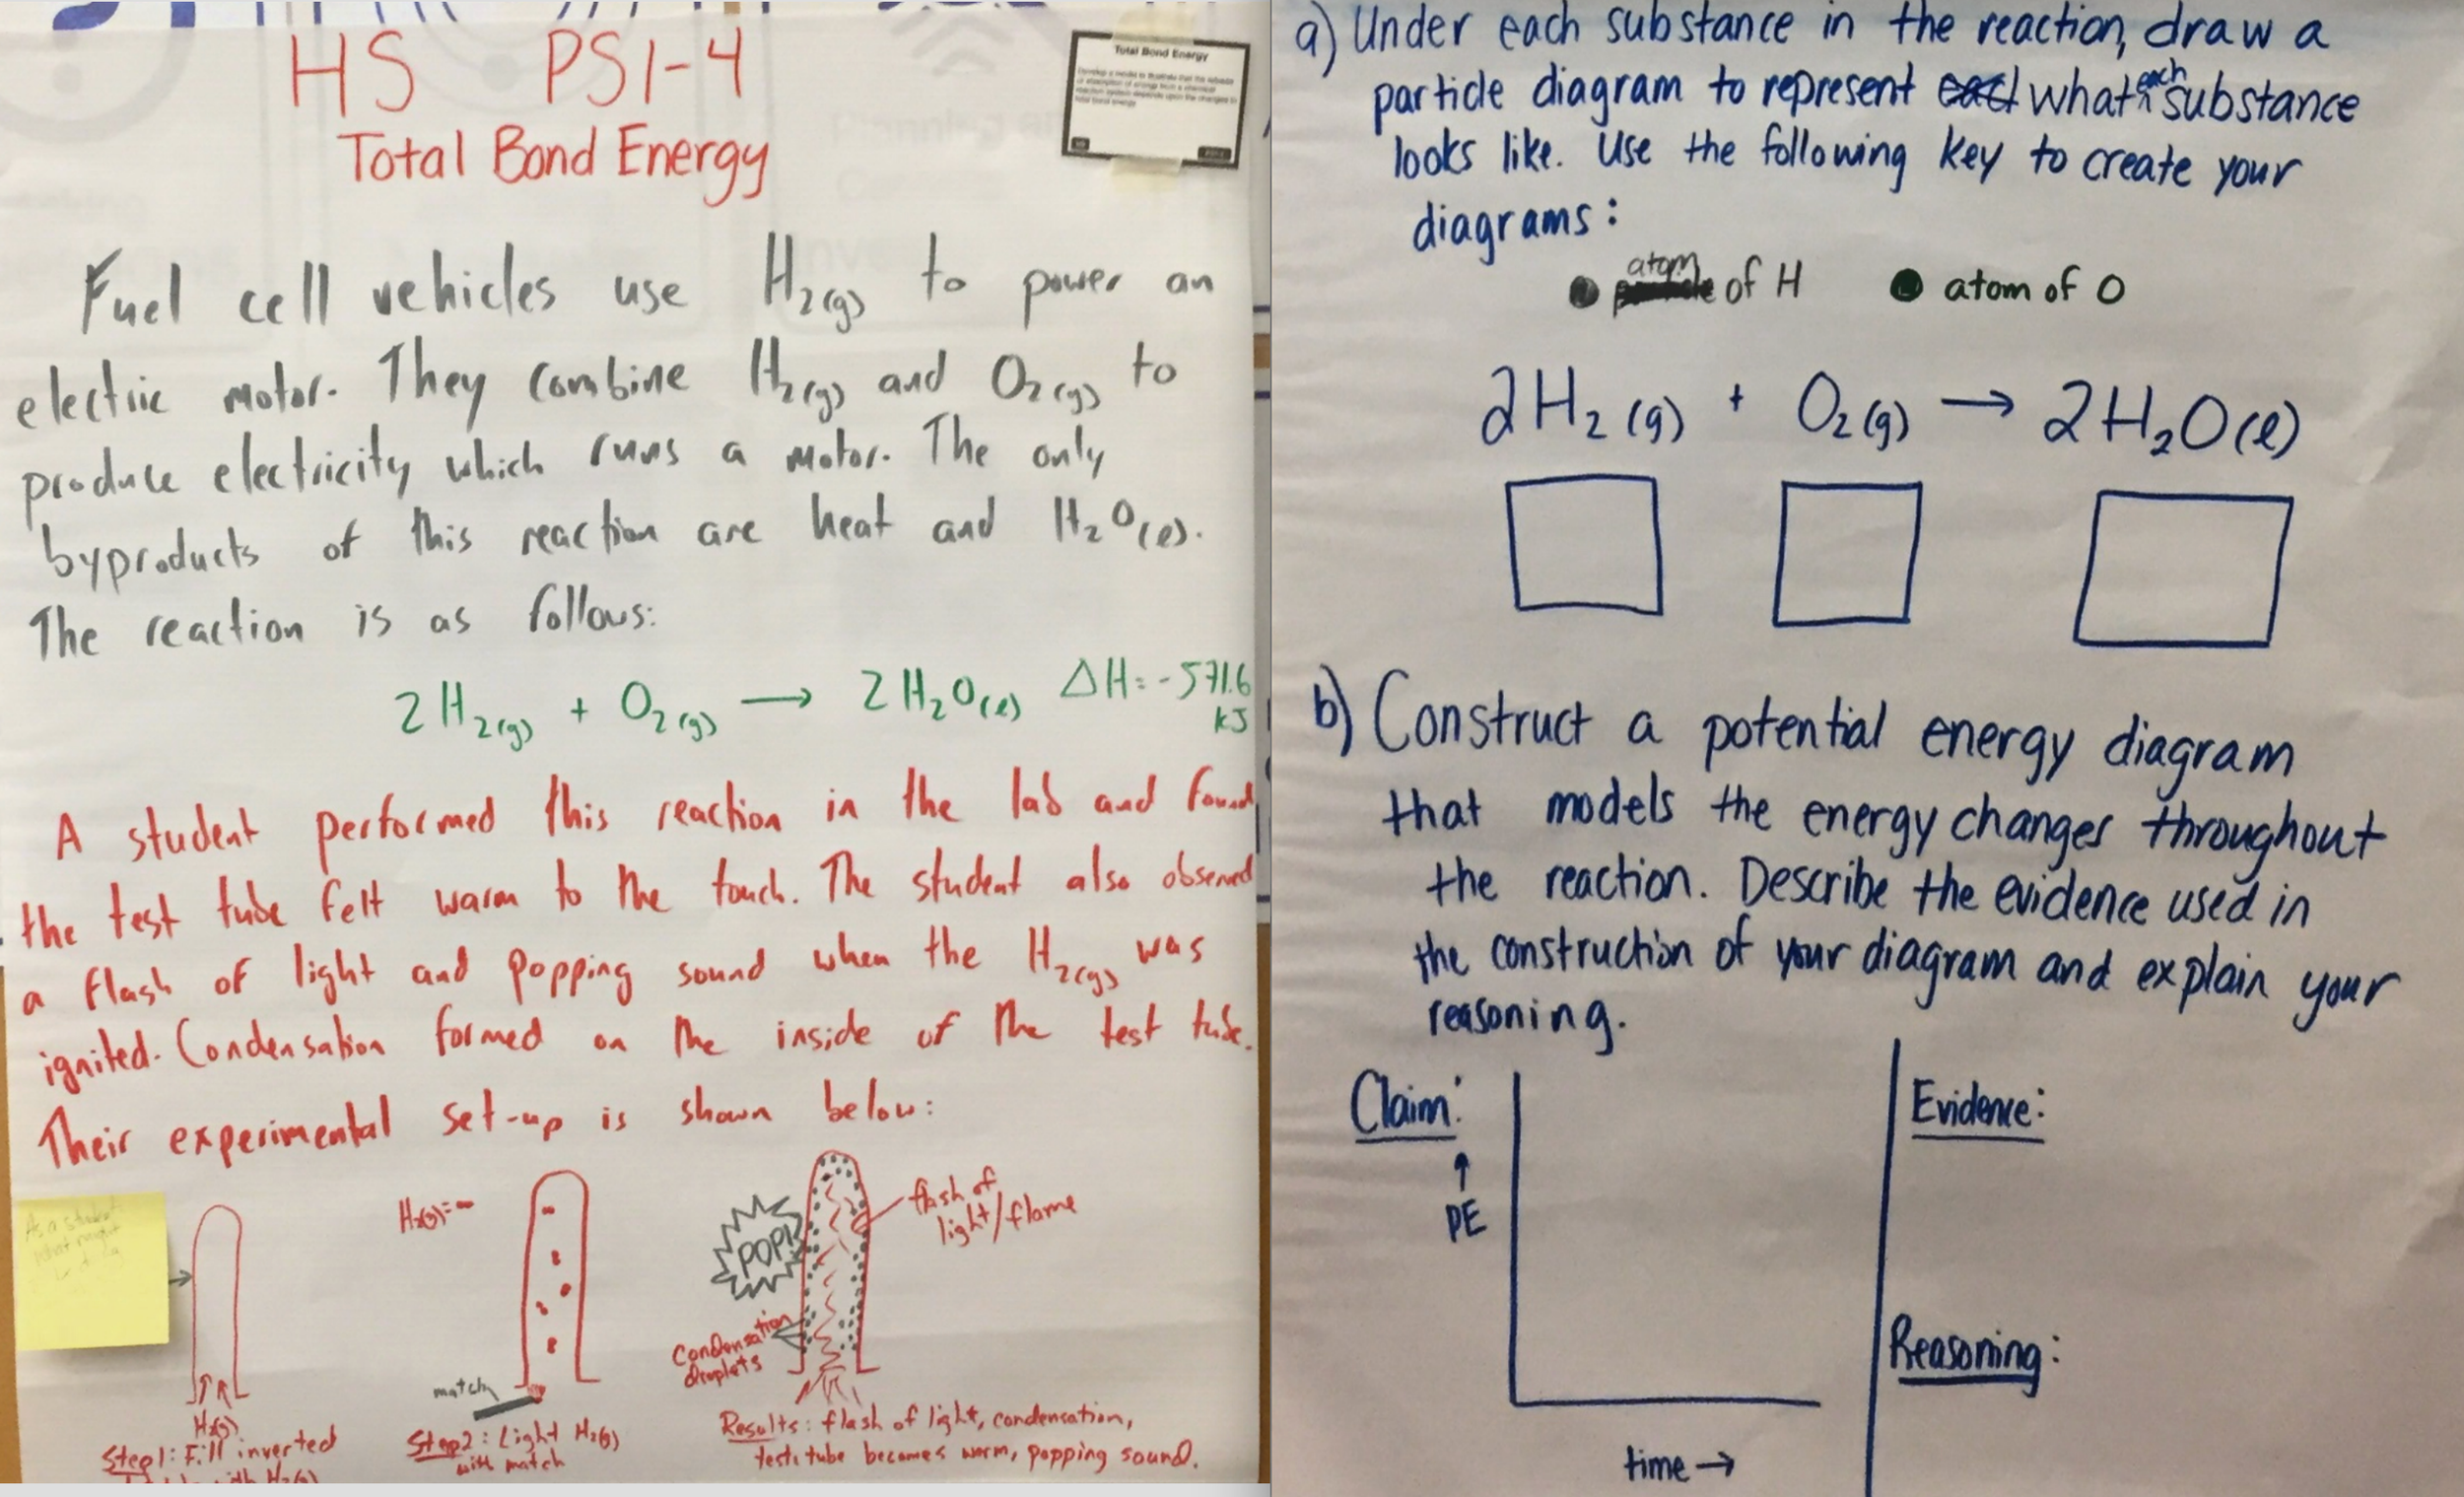 HS PS1-4
Total Bond Energy
Total Bond Energy
Fuel cell vehicles use H₂(g) to power an
electric motor. They combine H₂(g) and O₂(g) to
produce electricity which runs a motor. The only
byproducts of this reaction are heat and H₂O(l).
The reaction is as follows:
2H₂(g) + O₂(g) → 2H₂O(l) ΔH = -571.6
kJ
A student performed this reaction in the lab and found
the test tube felt warm to the touch. The student also observed
a flash of light and popping sound when the H₂(g) was
ignited. Condensation formed on the inside of the test tube.
Their experimental set-up is shown below:
As a student
what might
H₂(g)
Step 1: Fill inverted
with H₂(g)
H₂(g) =
match
Step 2: Light H₂(g)
with match
POP!
flash of
light/flame
Condensation
droplets
Results: flash of light, condensation,
test tube becomes warm, popping sound.
a) Under each substance in the reaction, draw a
particle diagram to represent what each substance
looks like. Use the following key to create your
diagrams:
atom of H
atom of O
2H₂(g) + O₂(g) → 2H₂O(l)
b) Construct a potential energy diagram
that models the energy changes throughout
the reaction. Describe the evidence used in
the construction of your diagram and explain your
reasoning.
Claim:
↑
PE
time →
Evidence:
Reasoning: